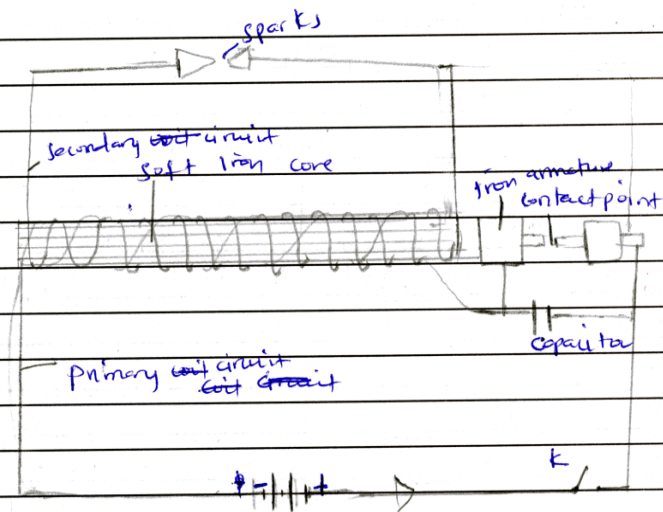 sparks
secondary circuit
soft Iron core
Iron armature
contact point
capacitor
primary circuit
- +
K